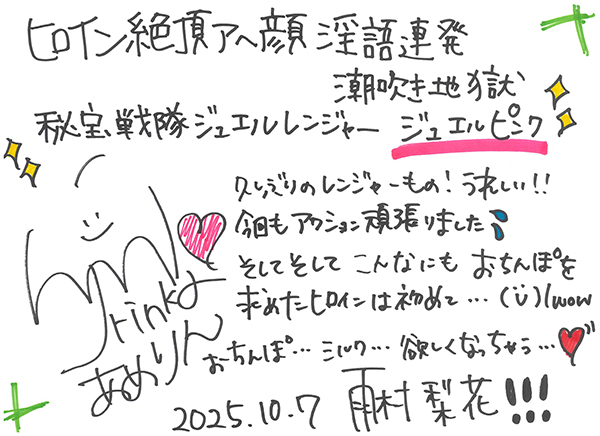 ヒロイン絶頂アヘ顔 淫語連発
潮吹き地獄
秘宝戦隊ジュエルレンジャー ジュエルピンク
久しぶりのレンジャーもの!うれしい!!
今回もアクション頑張りました
そしてそして こんなにも おちんぽを
求めたヒロインは初めて…(ü)/wow
おちんぽ…ミルク…欲しくなっちゃう…
rinka
あめりん
2025.10.7 雨村梨花!!!